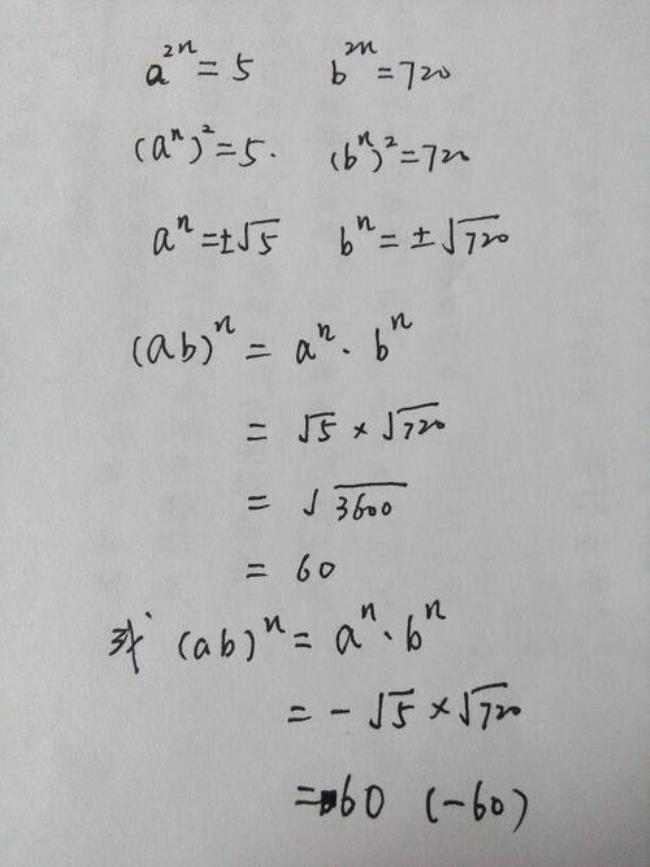 a²ⁿ = 5 b²ⁿ = 720
(aⁿ)² = 5. (bⁿ)² = 720
aⁿ = ±√5 bⁿ = ±√720
(ab)ⁿ = aⁿ · bⁿ
= √5 × √720
= √3600
= 60
或 (ab)ⁿ = aⁿ · bⁿ
= -√5 × √720
= 60 (-60)